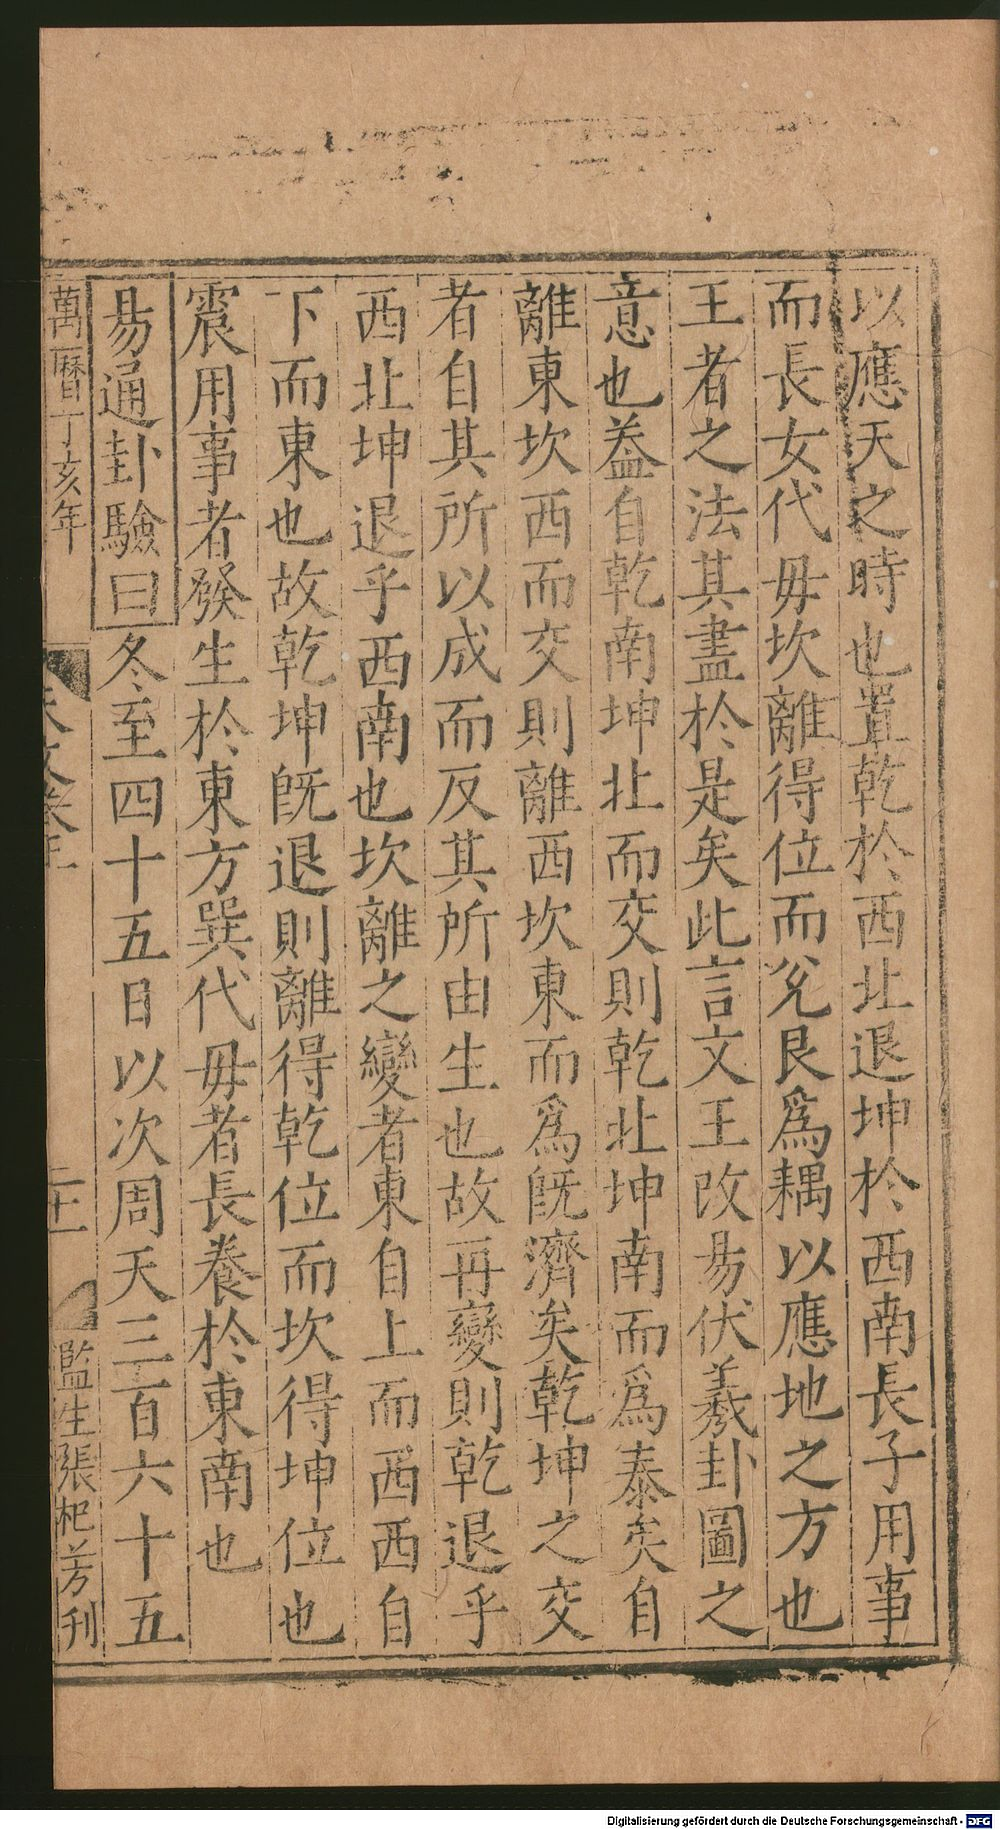 以應天之時也置乾於西北退坤於西南長子用事
而長女代母坎離得位而兊艮爲耦以應地之方也
王者之法其盡於是矣此言文王改易伏羲卦圖之
意也葢自乾南坤北而交則乾北坤南而爲泰矣自
離東坎西而交則離西坎東而爲旣濟矣乾坤之交
者自其所以成而反其所由生也故再變則乾退乎
西北坤退乎西南也坎離之變者東自上而西西自
下而東也故乾坤旣退則離得乾位而坎得坤位也
震用事者發生於東方巽代母者長養於東南也
易通卦驗曰冬至四十五日以次周天三百六十五
萬曆丁亥年
二十一
監生張杞芳刊
Digitalisierung gefördert durch die Deutsche Forschungsgemeinschaft - DFG